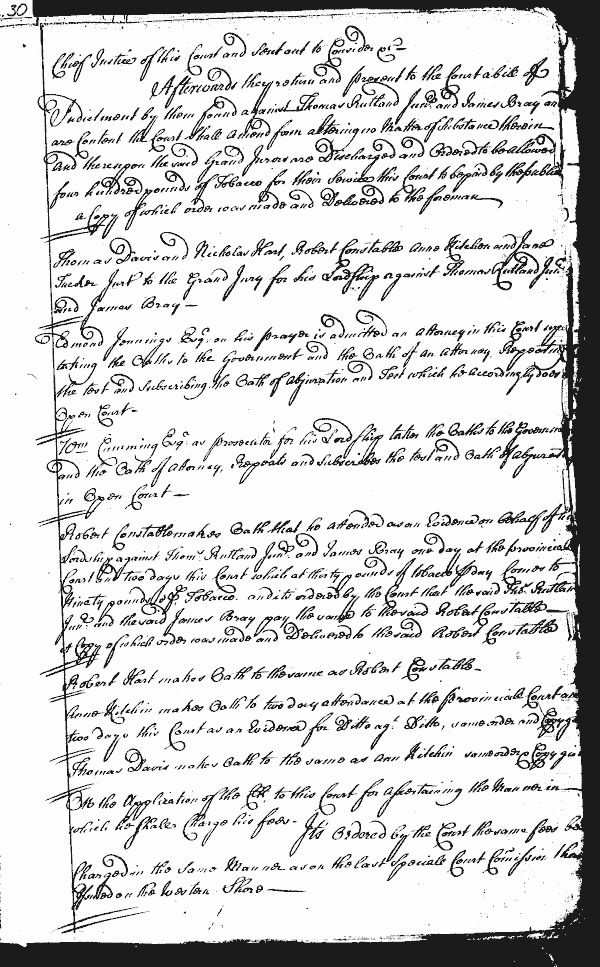 30
Chief Justice of this Court and Sent out to Consider &c
Afterwards they return and present to the Court a bill of
Indictment by them found against Thomas Rutland Junr. and James Bray and
are Content the Court shall Amend form altering no Matter of Substance therein
And thereupon the said Grand Jurors are Discharged and Ordered to be allowed
four hundred pounds of Tobacco for their Service this Court to be paid by the publick
a Copy of which order was made and Delivered to the foreman
Thomas Davis and Nicholas Hart, Robert Constable Anne Kitchen and Jane
Tucker Jurt. to the Grand Jury for his Lordship against Thomas Rutland Junr.
and James Bray
Edmond Jennings Esqr. on his prayer is admitted an Attorney in this Court
taking the Oaths to the Government and the Oath of an Attorney, Repeating
the test and Subscribing the Oath of Abjuration and Test which he accordingly does
Open Court
Wm Cumming Esqr. as prosecutor for his Lordship takes the Oaths to the Government
and the Oath of Attorney, Repeats and Subscribes the test and Oath of Abjuration
in Open Court
Robert Constable makes Oath that he attended as an Evidence on behalf of his
Lordship against Thoms. Rutland Junr. and James Bray one day at the provincial
Court and two days this Court which at thirty pounds of tobacco p day Comes to
Ninety pounds of Tobacco and its ordered by the Court that the said Tho. Rutland
Junr. and the said James Bray pay the same to the said Robert Constable
A Copy of which order was made and Delivered to the said Robert Constable
Robert Hart makes Oath to the same as Robert Constable
Anne Kitchin makes Oath to two day attendance at the provinciale Court and
two days this Court as an Evidence for Ditto agt. Ditto, same order and Copy
Thomas Davis makes Oath to the same as Ann Kitchin same order & Copy
On the Application of the Clk to this Court for ascertaining the Manner in
which he shall Charge his fees - It's Ordered by the Court the same fees be
Charged in the same Manner as on the last Speciale Court Comission
Issued on the Western Shore